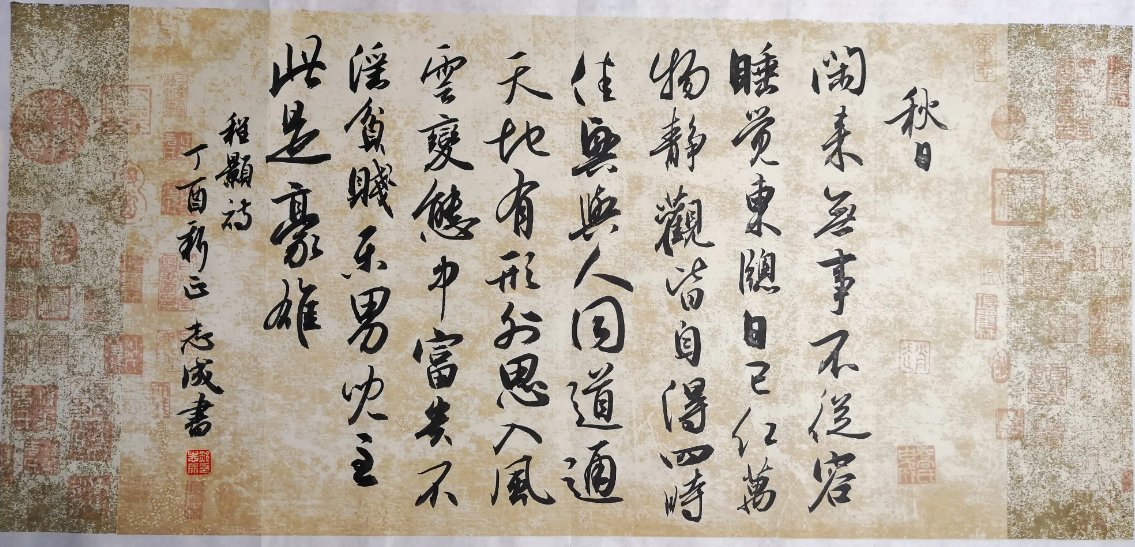 秋日
閑来無事不從容
睡觉東牕日已红萬
物静觀皆自得四時
佳興與人同道通
天地有形外思入風
雲變態中富貴不
淫貧賤乐男兒到
此是豪雄
程顥詩
丁酉新正 志成書